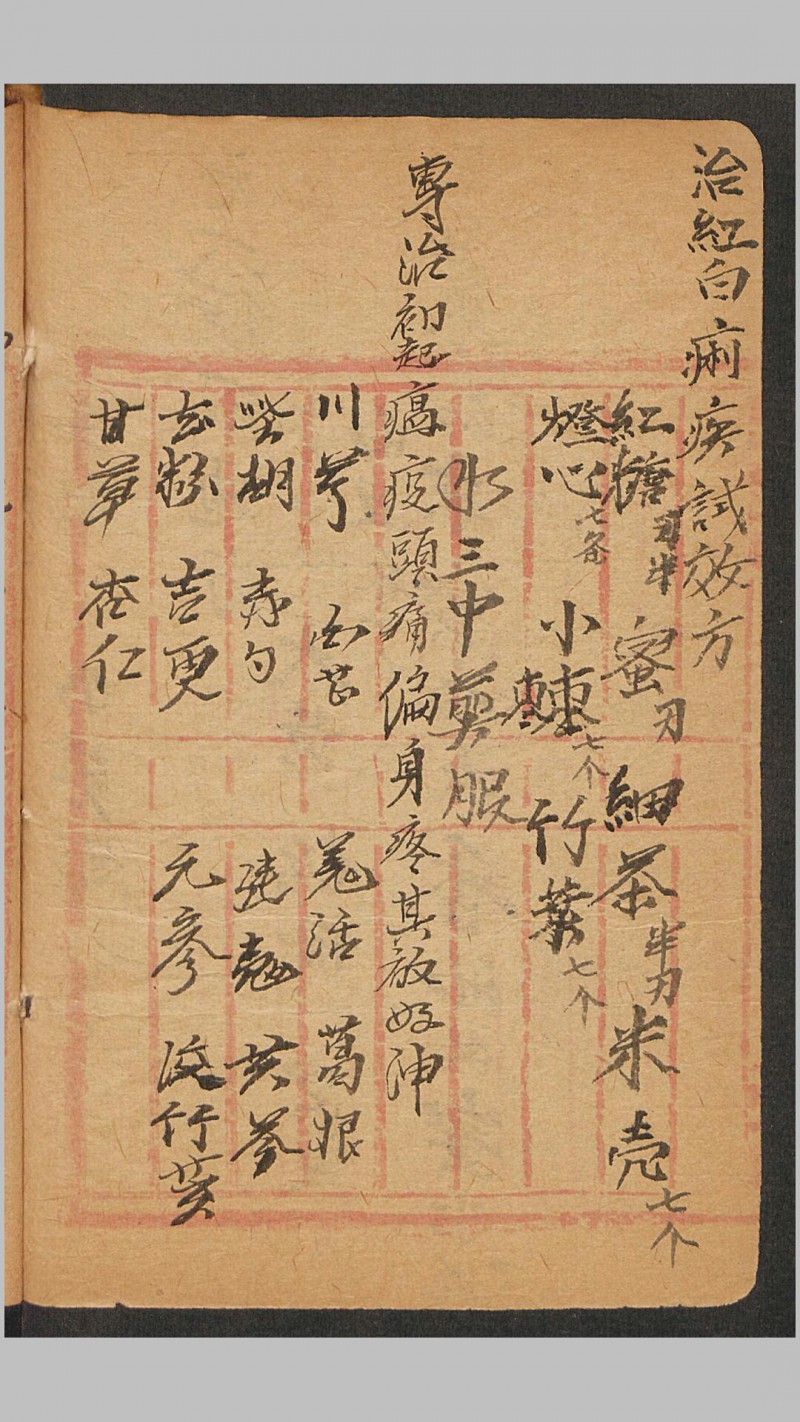 治紅白痢疾試效方
紅糖刃半 蜜刃 細茶半刃 米壳七个
燈心七条 小棗七个 竹葉七个
水三中煎服
專治初起瘟疫頭痛偏身疼其效如神
川芎 白芷 羌活 葛根
柴胡 赤勺 連翹 黄芩
花粉 吉更 元參 淡竹葉
甘草 杏仁